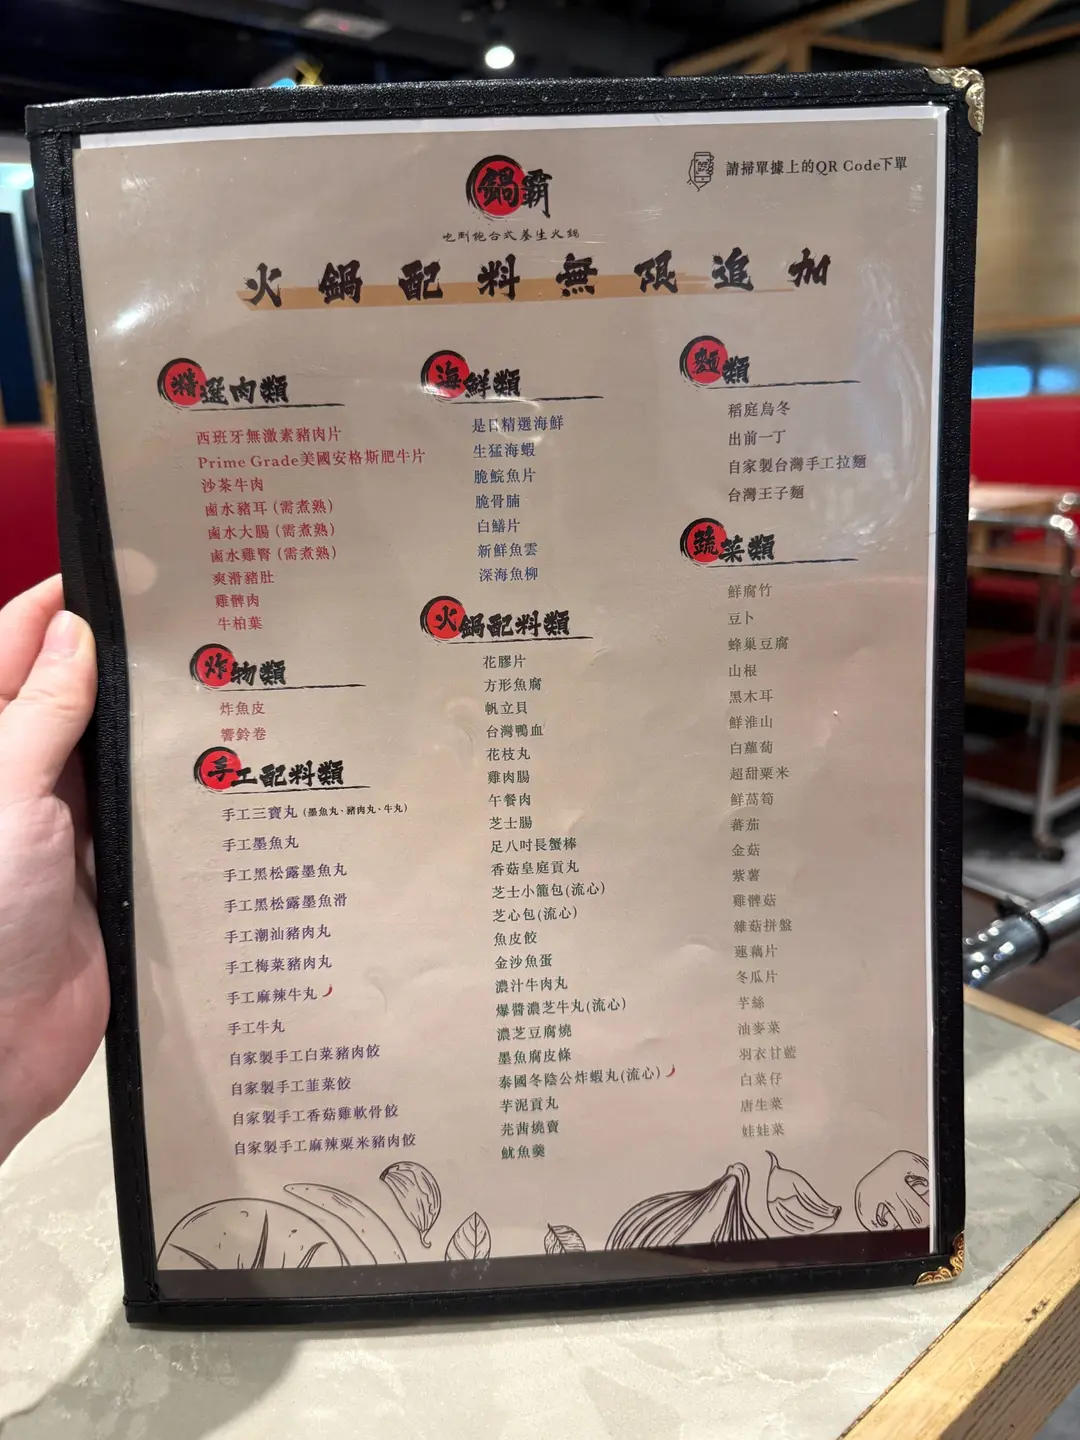 鍋霸
請掃單據上的QR Code下單
吃到飽台式養生火鍋
火鍋配料無限追加
精選肉類
西班牙無激素豬肉片
Prime Grade美國安格斯肥牛片
沙茶牛肉
鹵水豬耳 (需煮熟)
鹵水大腸 (需煮熟)
鹵水雞腎 (需煮熟)
爽滑豬肚
雞髀肉
牛柏葉
炸物類
炸魚皮
響鈴卷
手工配料類
手工三寶丸 (墨魚丸、豬肉丸、牛丸)
手工墨魚丸
手工黑松露墨魚丸
手工黑松露墨魚滑
手工潮汕豬肉丸
手工梅菜豬肉丸
手工麻辣牛丸
手工牛丸
自家製手工白菜豬肉餃
自家製手工韮菜餃
自家製手工香菇雞軟骨餃
自家製手工麻辣粟米豬肉餃
海鮮類
是日精選海鮮
生猛海蝦
脆鯇魚片
脆骨腩
白鱔片
新鮮魚雲
深海魚柳
火鍋配料類
花膠片
方形魚腐
帆立貝
台灣鴨血
花枝丸
雞肉腸
午餐肉
芝士腸
足八吋長蟹棒
香菇皇庭貢丸
芝士小籠包(流心)
芝心包(流心)
魚皮餃
金沙魚蛋
濃汁牛肉丸
爆醬濃芝牛丸(流心)
濃芝豆腐燒
墨魚腐皮條
泰國冬陰公炸蝦丸(流心)
芋泥貢丸
芫茜燒賣
魷魚羹
麵類
稻庭烏冬
出前一丁
自家製台灣手工拉麵
台灣王子麵
蔬菜類
鮮腐竹
豆卜
蜂巢豆腐
山根
黑木耳
鮮淮山
白蘿蔔
超甜粟米
鮮萵筍
蕃茄
金菇
紫薯
雞髀菇
雜菇拼盤
蓮藕片
冬瓜片
芋絲
油麥菜
羽衣甘藍
白菜仔
唐生菜
娃娃菜